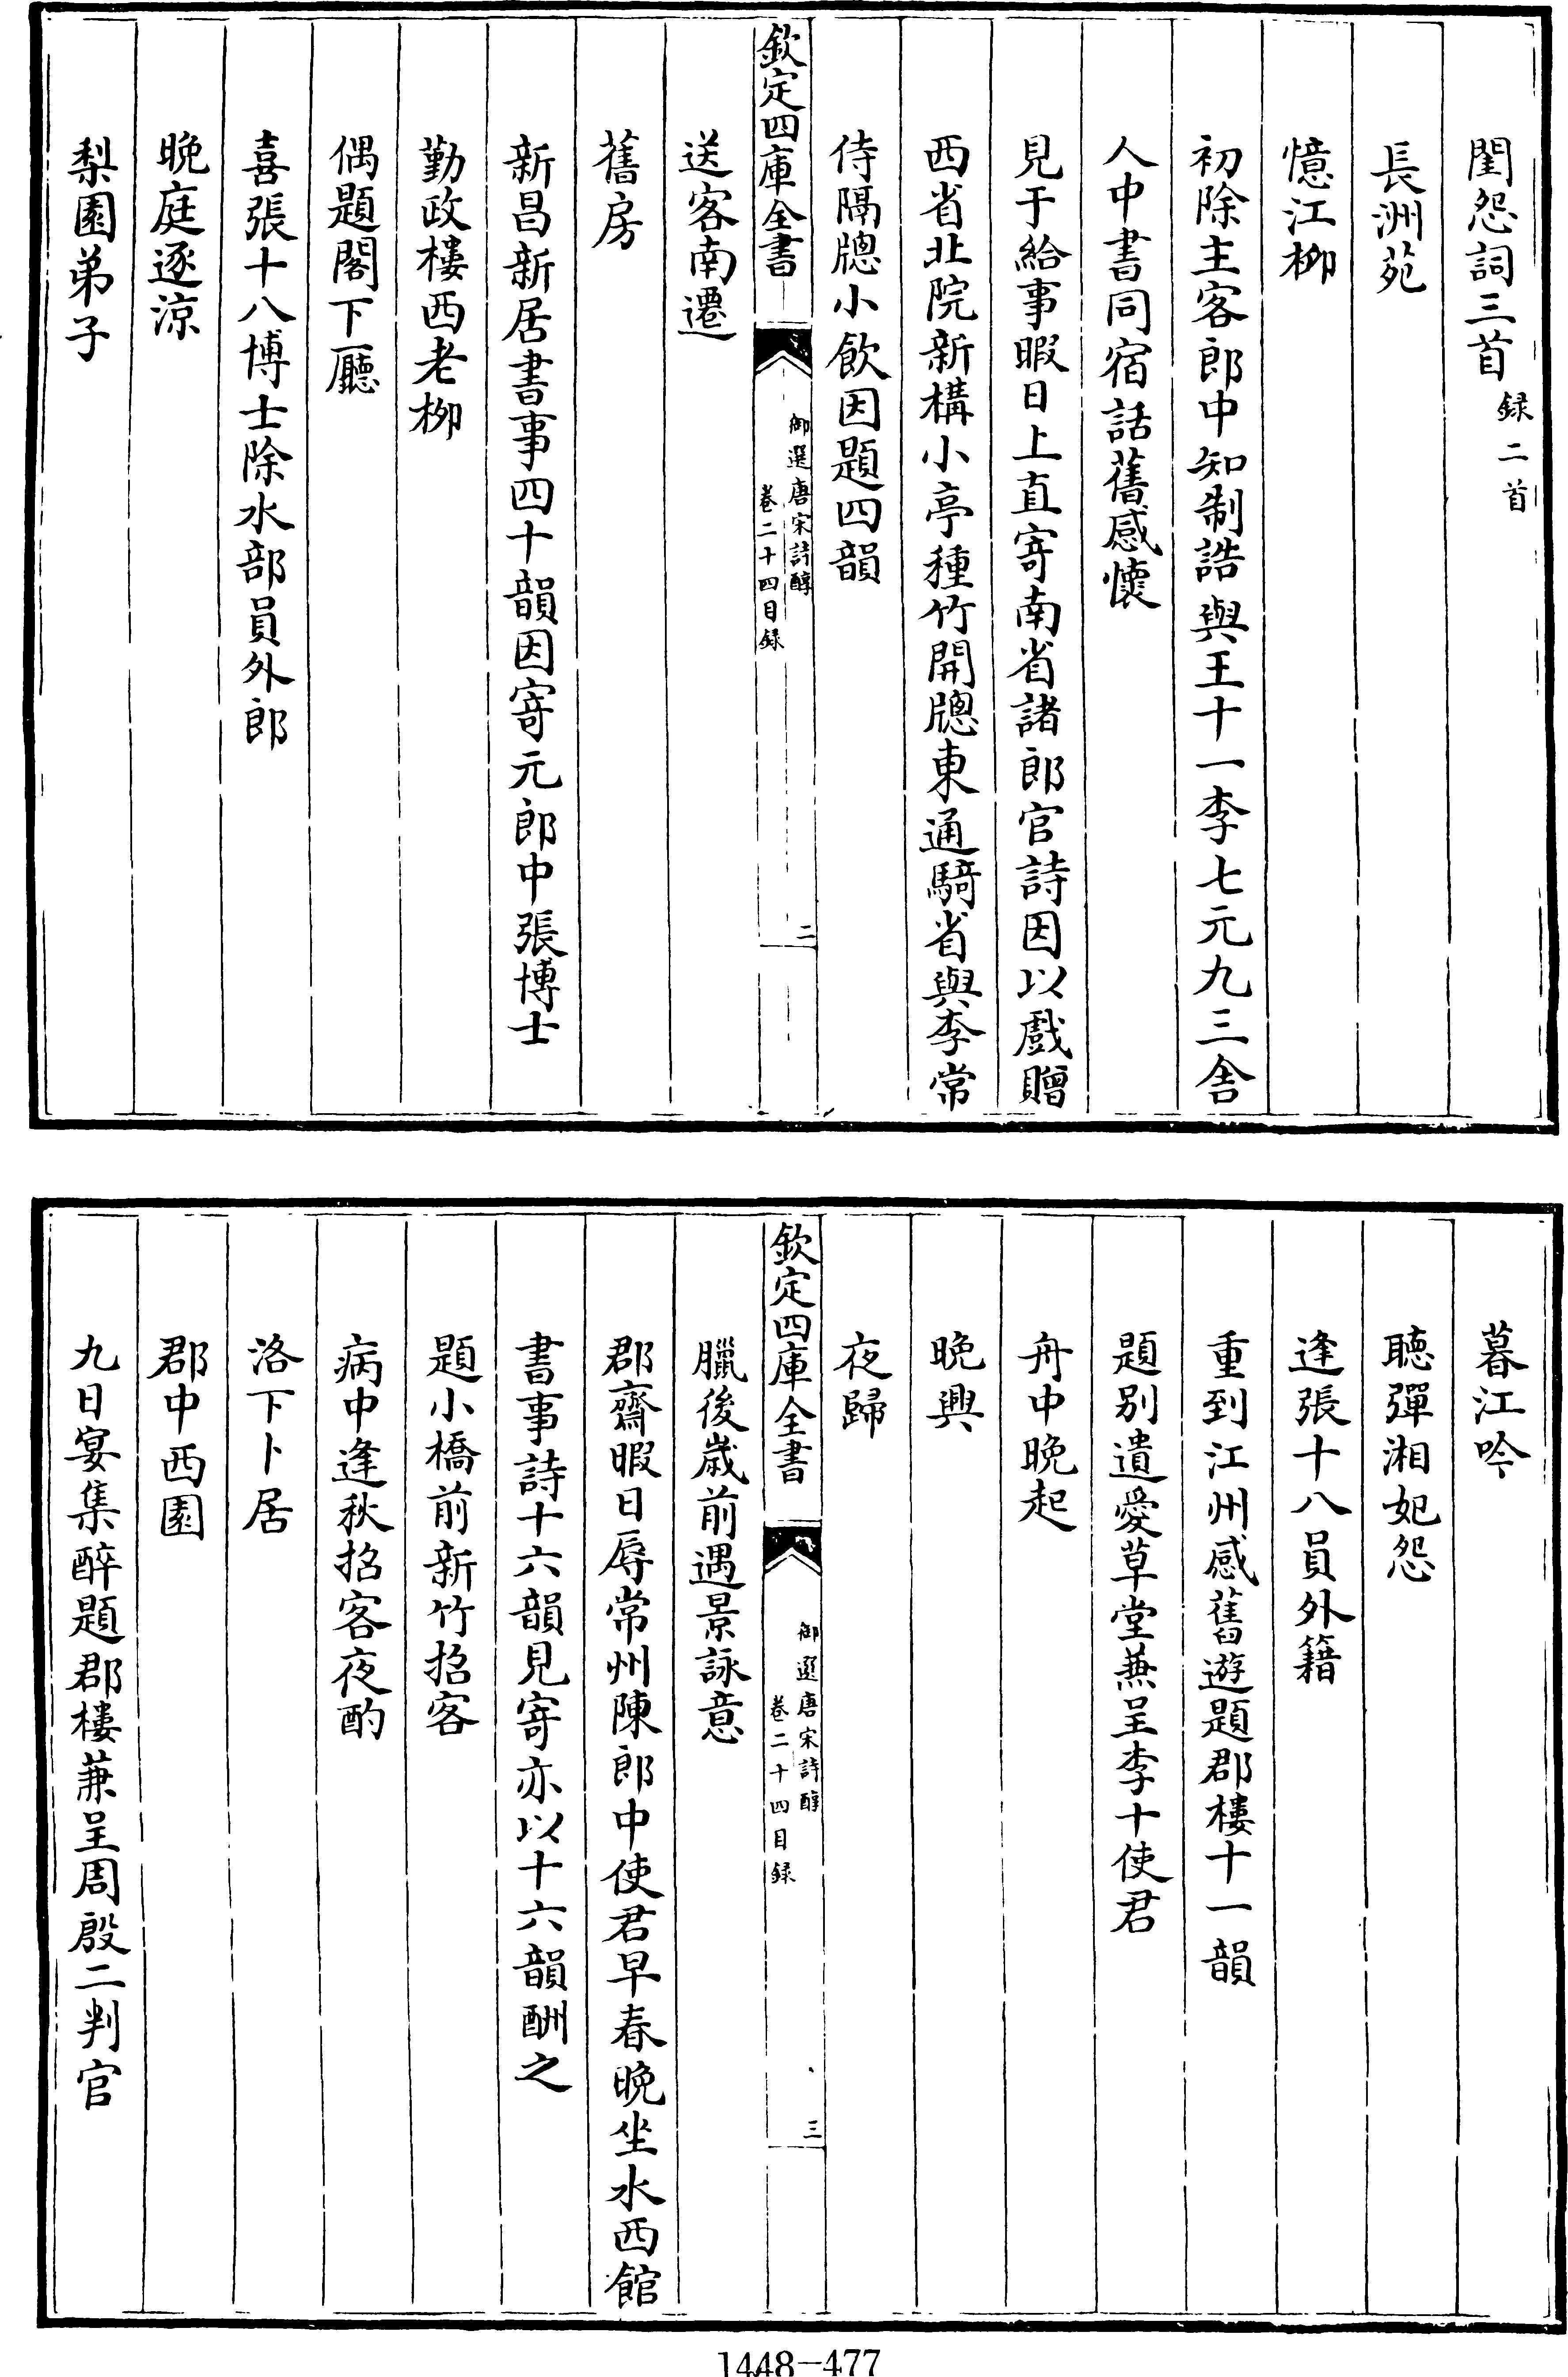 閨怨詞三首録二首
長洲苑
憶江柳
初除主客郎中知制誥與王十一李七元九三舎
人中書同宿話舊感懷
見于給事暇日上直寄南省諸郎官詩因以戲贈
西省北院新構小亭種竹開牕東通騎省與李常
侍隔牕小飲因題四韻
欽定四庫全書
御選唐宋詩醇
卷二十四目録
二
送客南遷
舊房
新昌新居書事四十韻因寄元郎中張博士
勤政樓西老柳
偶題閣下廳
喜張十八博士除水部員外郎
晚庭逐涼
梨園弟子
暮江吟
聽彈湘妃怨
逢張十八員外籍
重到江州感舊遊題郡樓十一韻
題別遺愛草堂蕪呈李十使君
舟中晚起
晚興
夜歸
欽定四庫全書
御選唐宋詩醇
卷二十四目録
三
臘後歲前遇景詠意
郡齋暇日辱常州陳郎中使君早春晚坐水西館
書事詩十六韻見寄亦以十六韻酬之
題小橋前新竹招客
病中逢秋招客夜酌
洛下卜居
郡中西園
九日宴集醉題郡樓蒹呈周殷二判官
1448-477